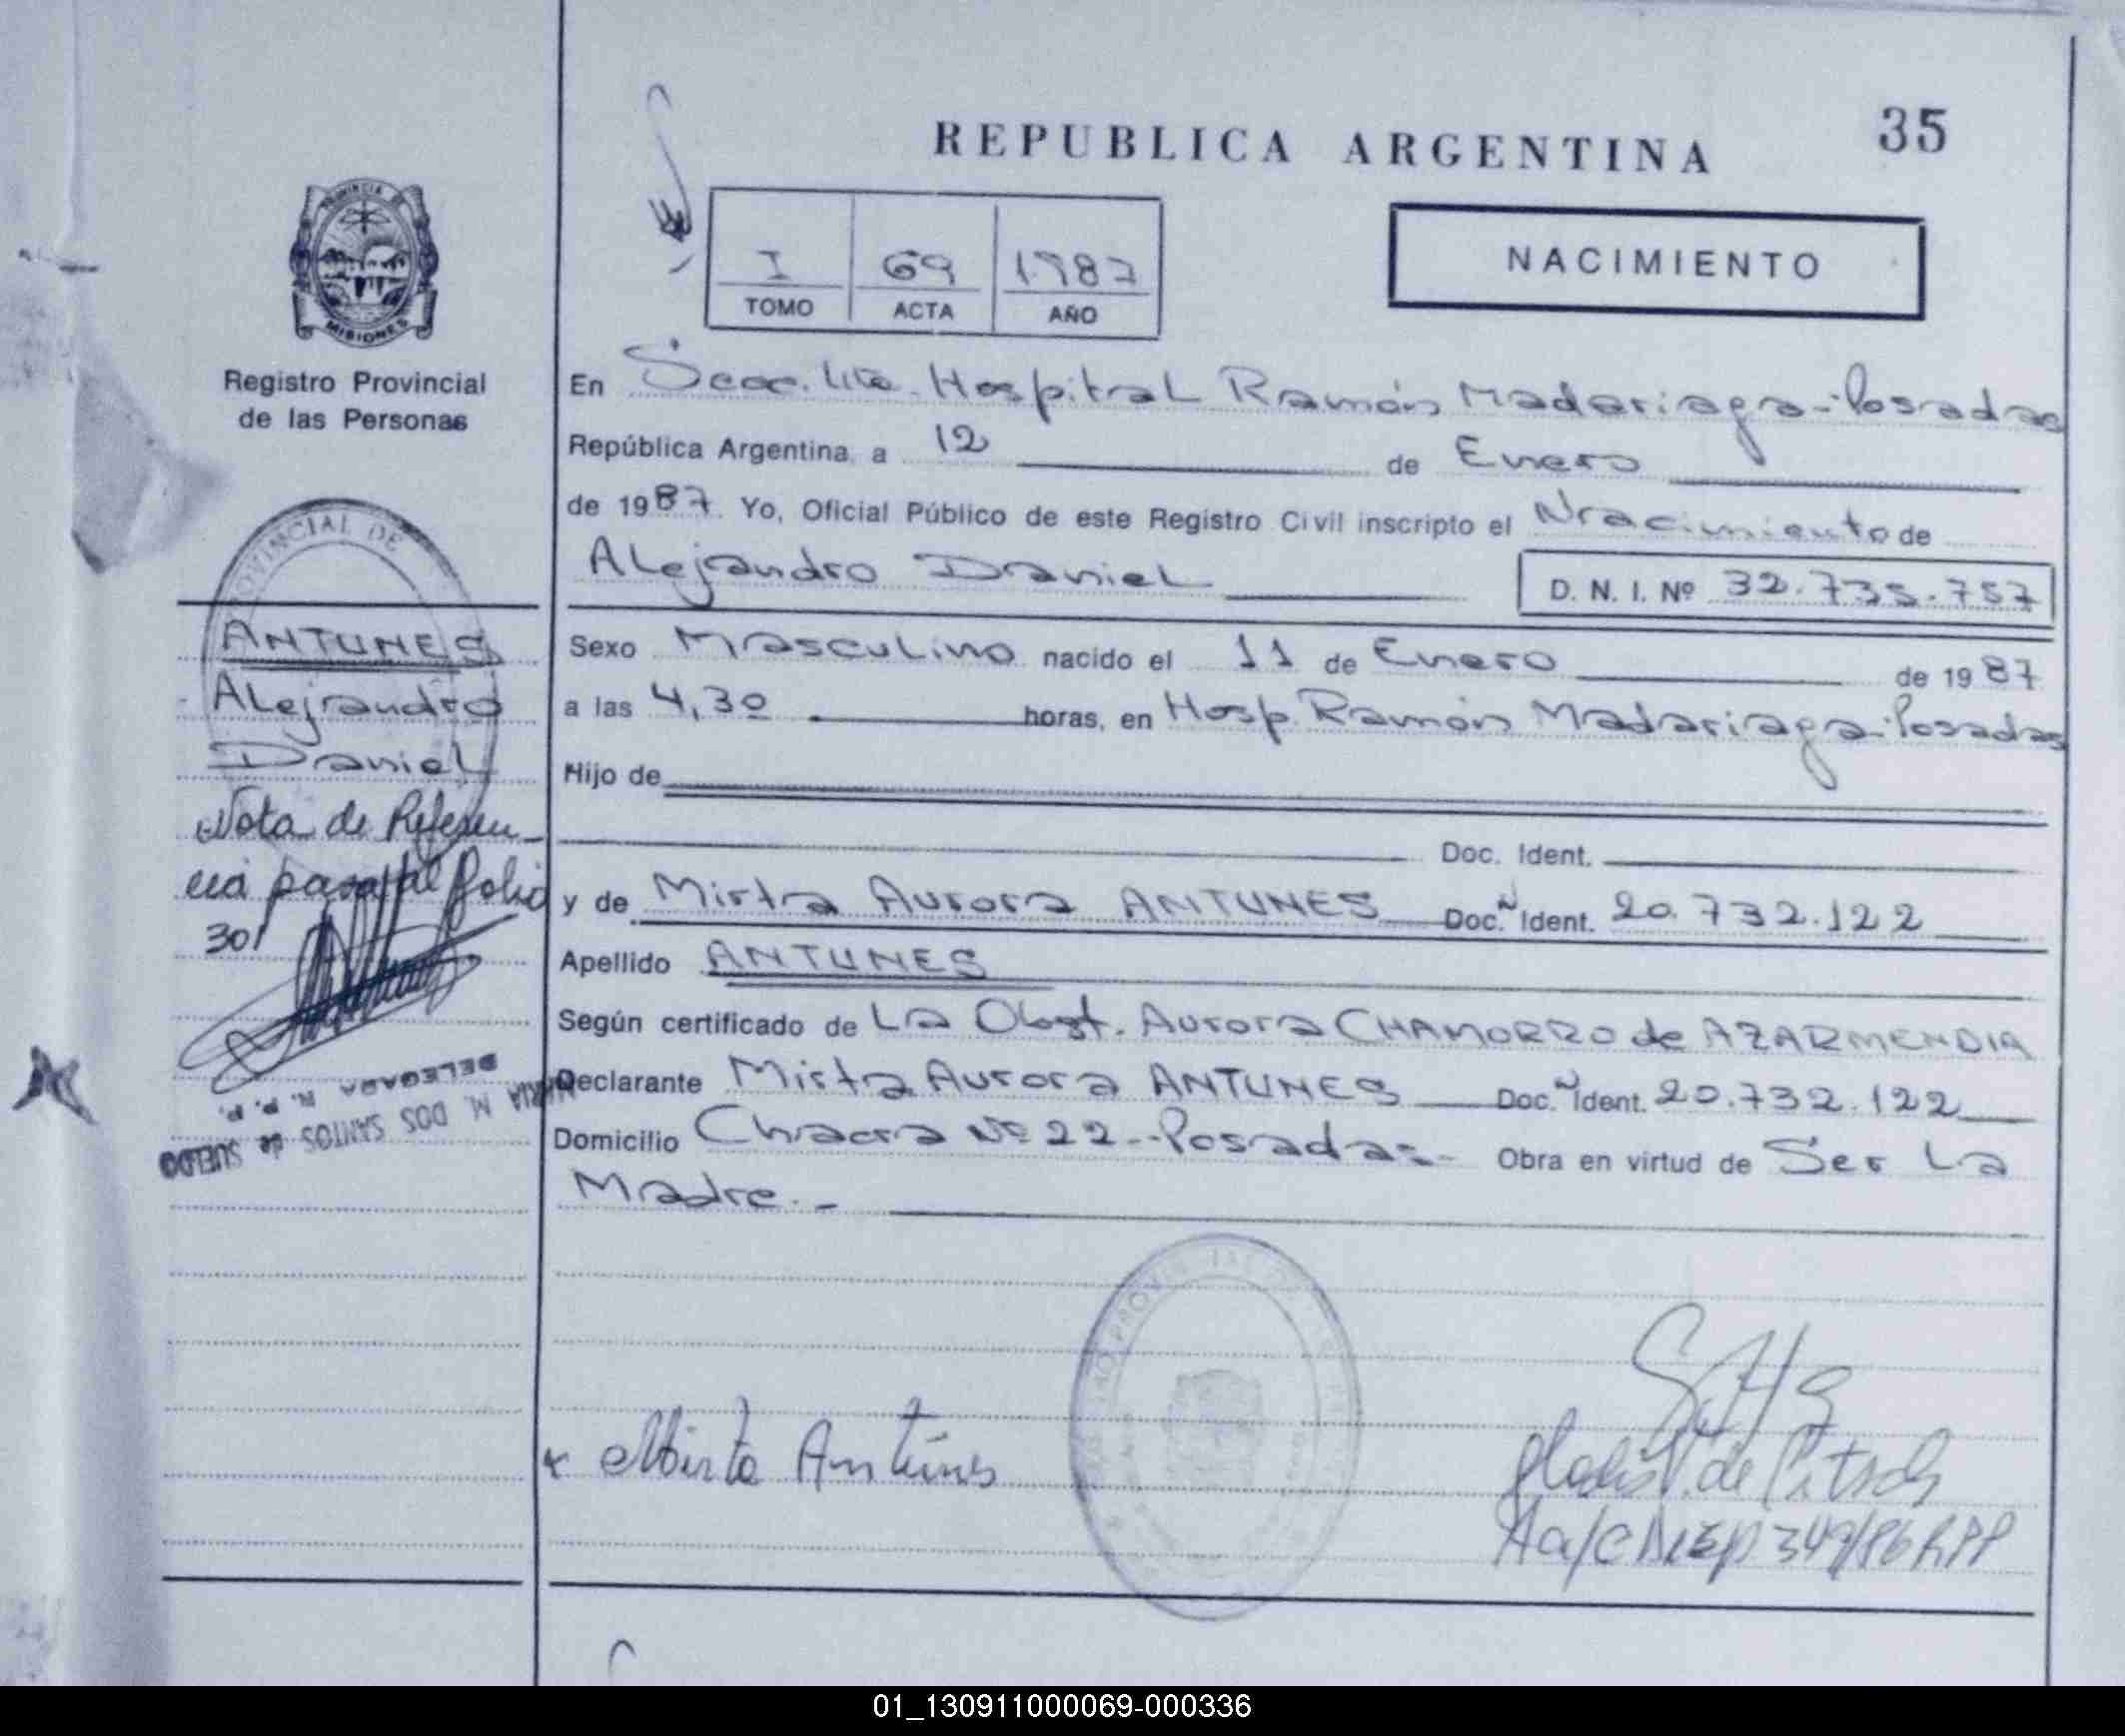 REPUBLICA ARGENTINA
35
PROVINCIA DE
MISIONES
Registro Provincial
de las Personas
I 69 1987
TOMO ACTA AÑO
NACIMIENTO
En Secc. Hospital Ramón Madariaga-Posadas
República Argentina, a 12 de Enero
de 1987. Yo, Oficial Público de este Registro Civil inscripto el Nacimiento de
Alejandro Daniel
D. N. I. Nº 32.735.757
Sexo Masculino nacido el 11 de Enero de 1987
a las 4,30 horas, en Hosp. Ramón Madariaga-Posadas
Hijo de
Doc. Ident.
y de Mirta Aurora ANTUNES Doc. N Ident. 20.732.122
Apellido ANTUNES
Según certificado de La Obst. Aurora CHAMORRO de AZARMENDIA
Declarante Mirta Aurora ANTUNES Doc. N Ident. 20.732.122
Domicilio Chacra Nº 22.-Posadas- Obra en virtud de Ser La
Madre.-
PROVINCIAL DE
ANTUNES
Alejandro
Daniel
Nota de Referen-
cia pasa al folio
301
MARIA M. DOS SANTOS de SUELDO
DELEGADA R. P. P.
Mirta Antúnes
de
349/86 RPP
01_130911000069-000336